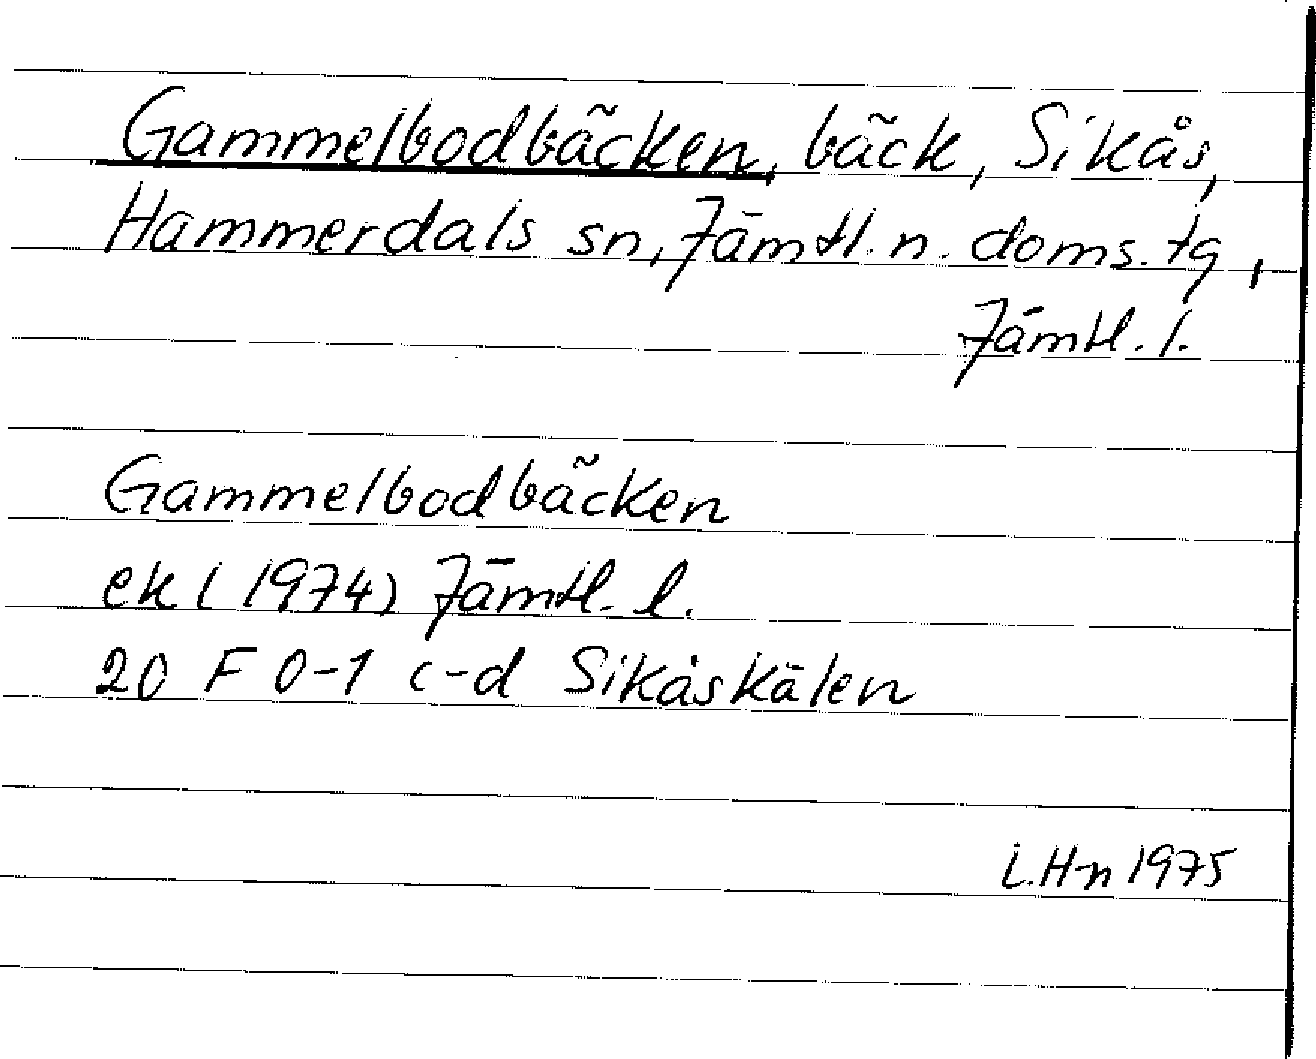 Gammelbodbäcken, bäck, Sikås,
Hammerdals sn, Jämtl. n. doms. tg,
Jämtl. l.
Gammelbodbäcken
ek (1974) Jämtl. l.
20 F 0-1 c-d Sikåskälen
L.H-n 1975